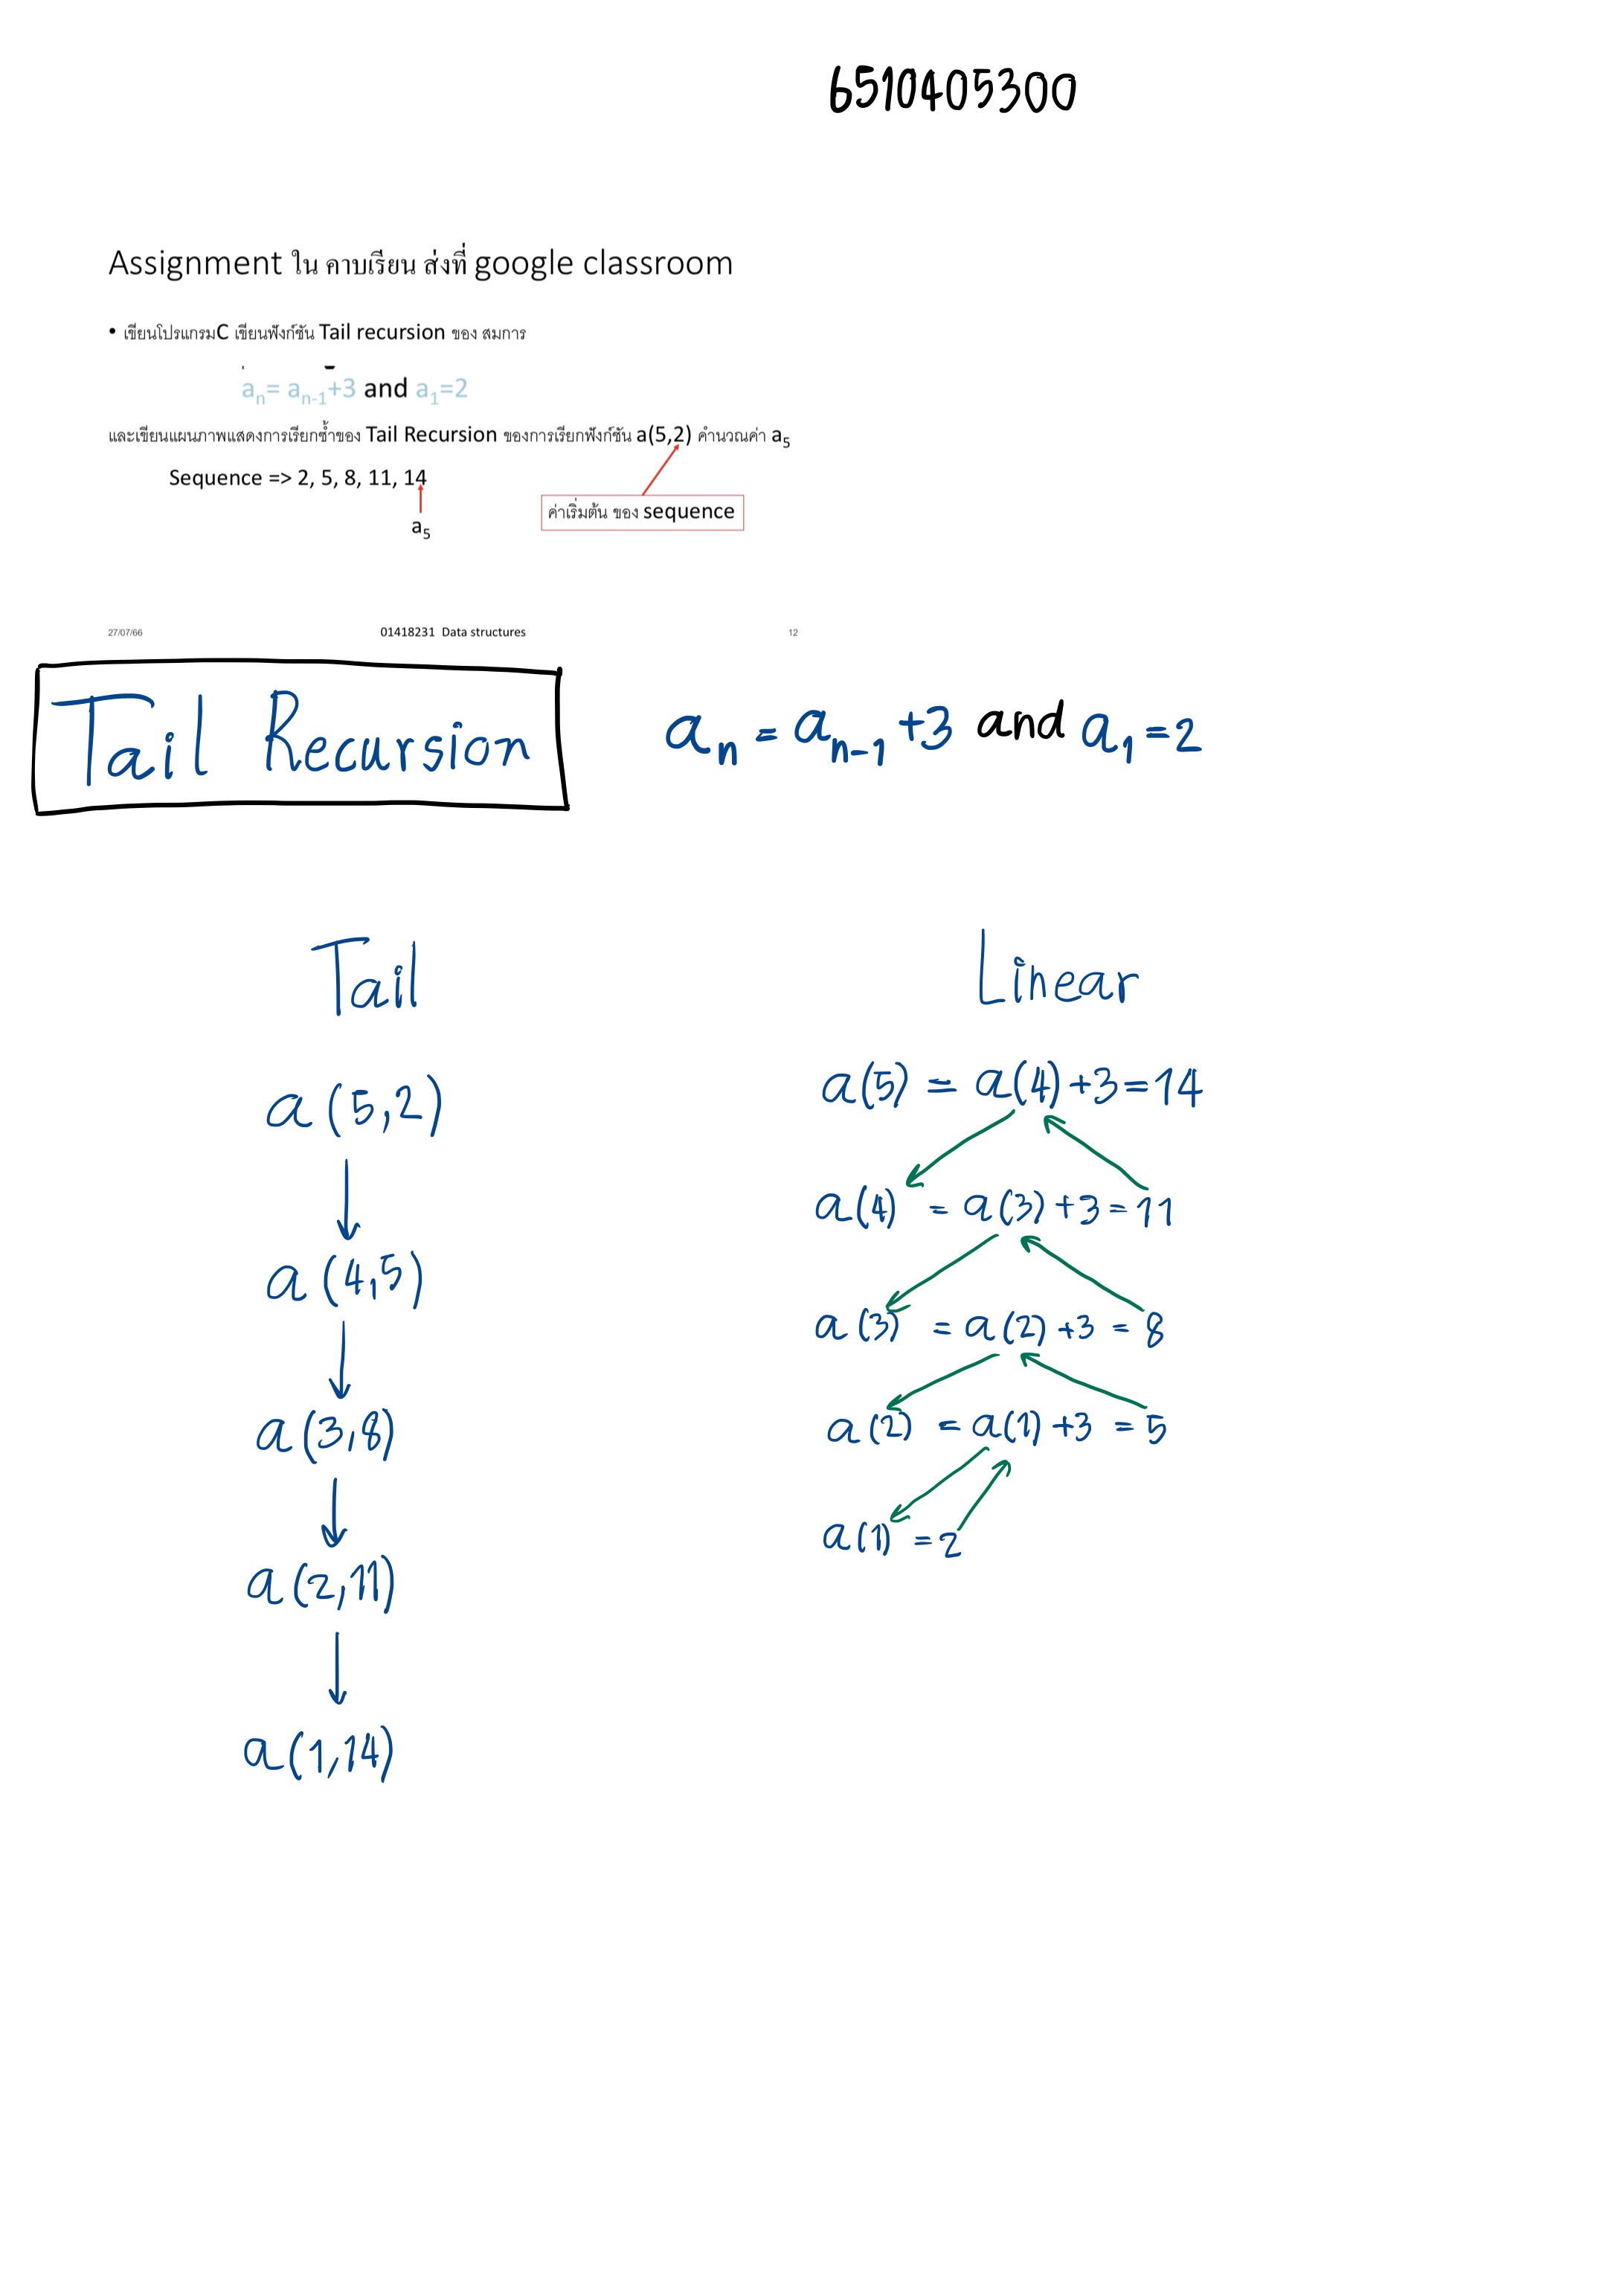 6510405300
Assignment ใน คาบเรียน ส่งที่ google classroom
• เขียนโปรแกรมC เขียนฟังก์ชัน Tail recursion ของ สมการ
aₙ= aₙ₋₁+3 and a₁=2
และเขียนแผนภาพแสดงการเรียกซ้ำของ Tail Recursion ของการเรียกฟังก์ชัน a(5,2) คำนวณค่า a₅
Sequence => 2, 5, 8, 11, 14
ค่าเริ่มต้น ของ sequence
a₅
27/07/66 01418231 Data structures 12
Tail Recursion
aₙ = aₙ₋₁ +3 and a₁ = 2
Tail
a(5,2)
a(4,5)
a(3,8)
a(2,11)
a(1,14)
Linear
a(5) = a(4)+3=14
a(4) = a(3)+3=11
a(3) = a(2)+3 = 8
a(2) = a(1)+3 = 5
a(1) = 2